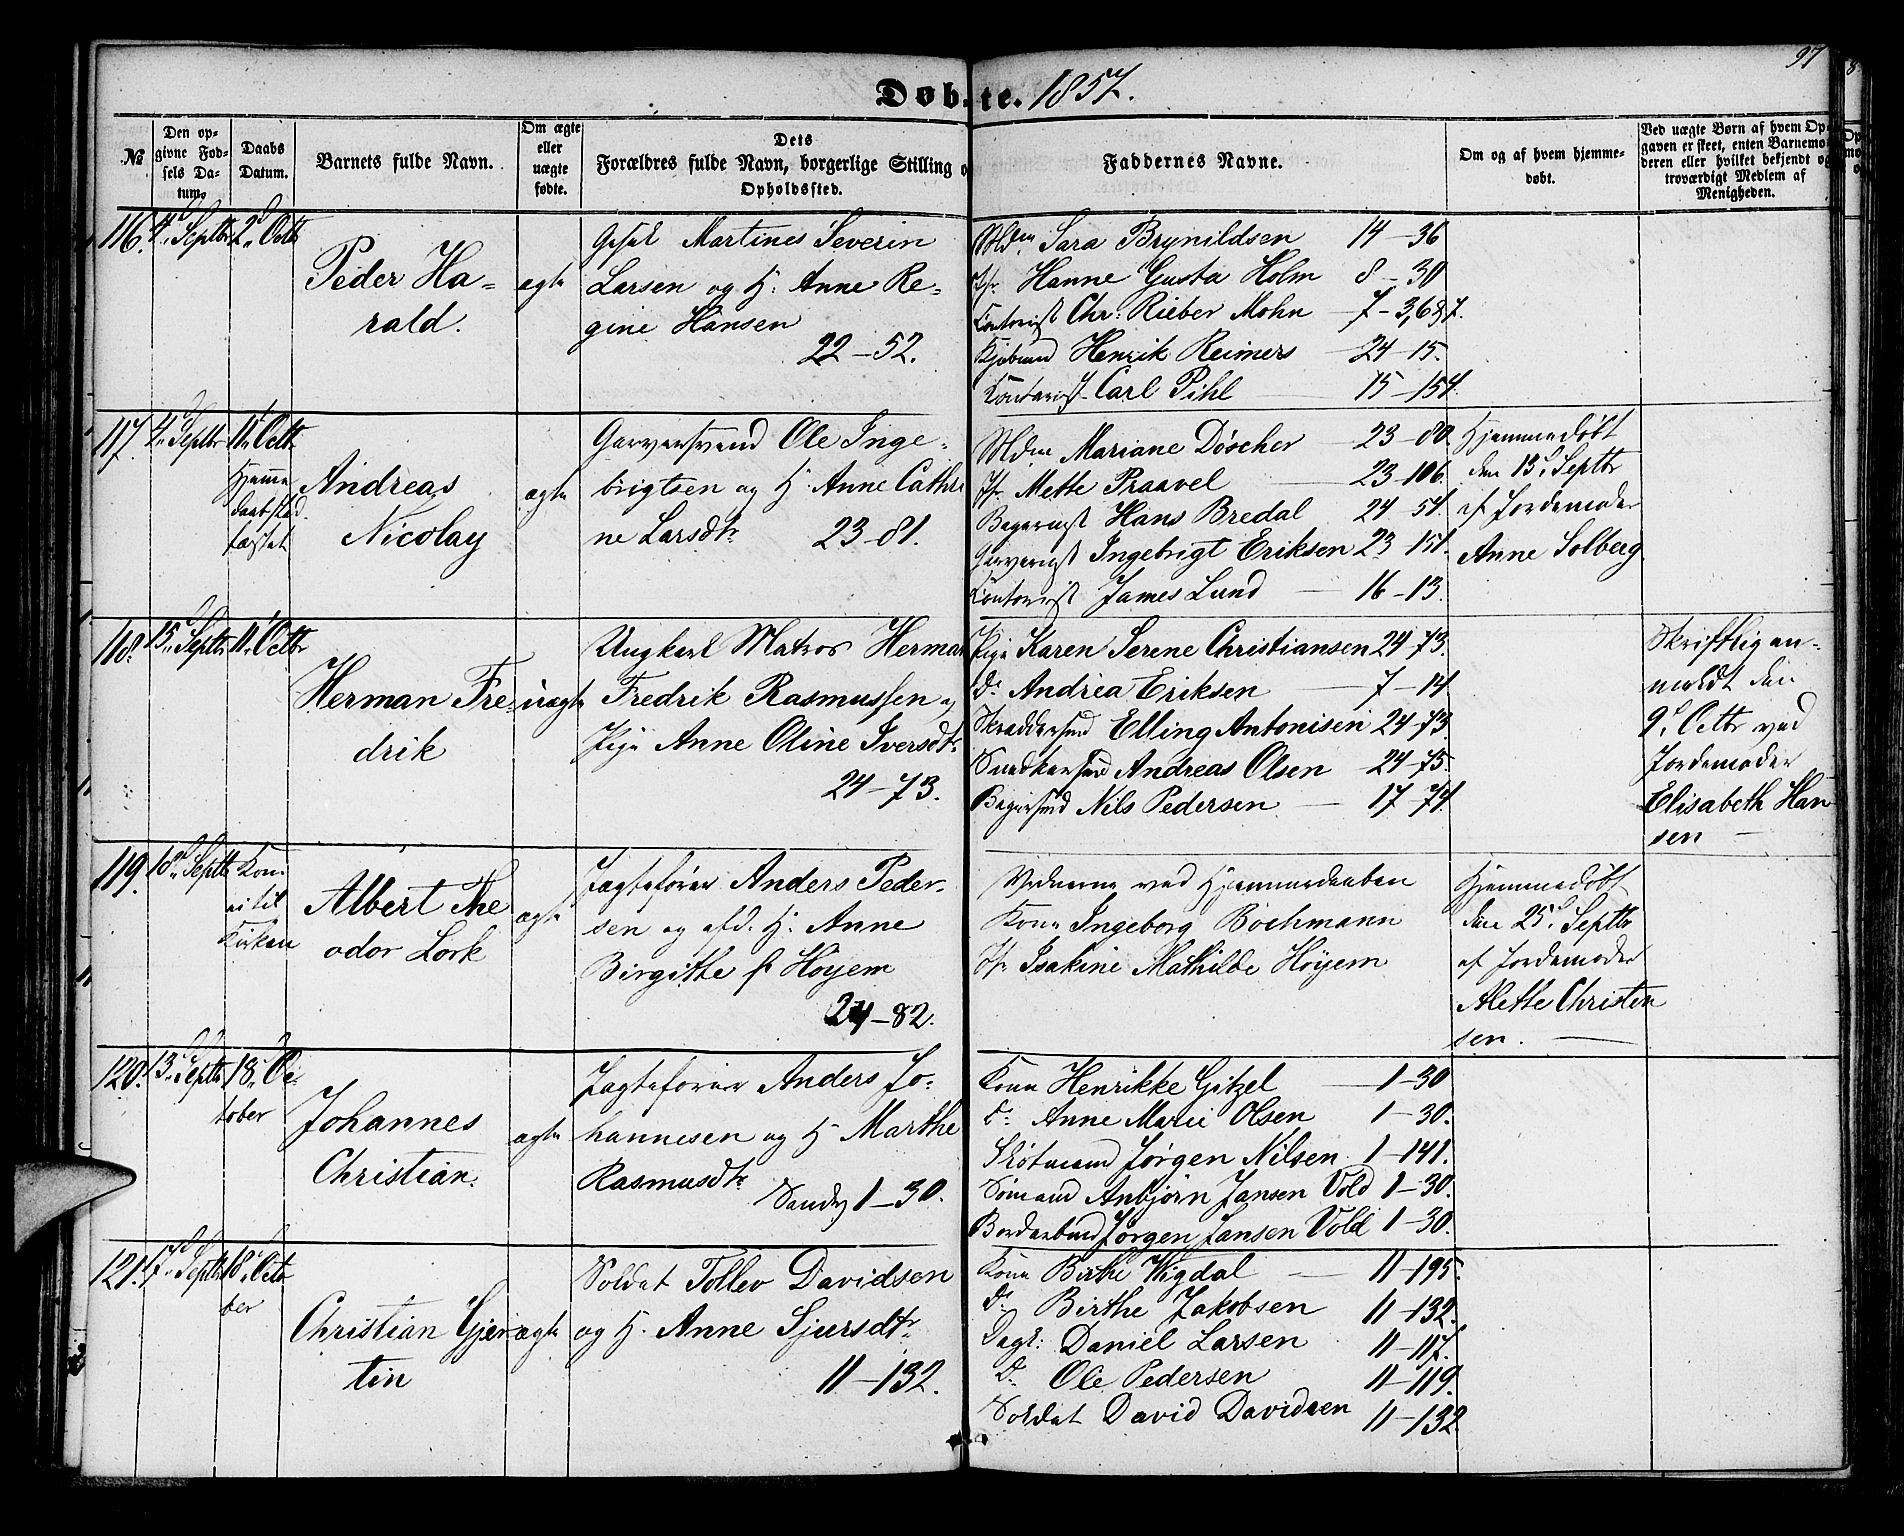 97
Døbte. 1857.
No
Den opgivne Fødsels Datum.
Daabs Datum.
Barnets fulde Navn.
Om ægte eller uægte fødte.
Dets Forældres fulde Navn, borgerlige Stilling o
Opholdssted.
Faddernes Navne.
Om og af hvem hjemmedøbt.
Ved uægte Børn af hvem Opgaven er skeet, enten Barnemoderen eller hvilket bekjendt og troværdigt Medlem af Menigheden.
116. 4d Septbr 2d Octb
Peder Ha-
rald.
ægte
Gesel Martines Severin
Larsen og H. Anne Re-
gine Hansen
22-52.
Mdm Sara Brynildsen 14-36
Jfr. Hanne Gusta Holm 8-30
Contorist Chr. Rieber Mohn 7-3,6&7.
Kjøbmd Henrik Reimers 24-15.
Contorist Carl Pihl 15-154.
117. 4d Septbr 11d Octb
Hjemme
daab stad
fæstet
Andreas
Nicolay
ægte
Garversvend Ole Inge-
brigtsen og H. Anne Cathri
ne Larsdtr 23-81.
Mdm Mariane Döscher 23-80.
Jfr. Mette Praavel 23-106.
Bagersvd Hans Bredal 24-54.
Garversvd Ingebrigt Eriksen 23-151.
Contorist James Lund 16-13.
Hjemmedøbt
den 13d Septbr
af Jordemoder
Anne Solberg
118. 15d Septbr 11d Octbr
Herman Fre-
drik
uægte
Ungkarl Matros Herman
Fredrik Rasmussen og
Pige Anne Oline Iversdtr
24-73.
Pige Karen Serene Christiansen 24-73.
do Andrea Eriksen 7-14
Skræddersvd Elling Antonisen 24-73.
Snedkersvd Andreas Olsen 24-75.
Bagersvd Nils Pedersen 17-74
Skriftlig an-
meldt den
9d Octbr ved
Jordemoder
Elisabeth Han
sen
119. 18d Septb Kom
ei til
Kirken
Albert The
odor Lork
ægte
Jagtefører Anders Peder-
sen og afd. H. Anne
Birgitte f. Høyem
24-82.
Vidnerne ved Hjemmedaaben
Kone Ingeborg Bochmann
Jfr Isakine Mathilde Höyem
Hjemmedøbt
den 25d Septbr
af Jordemoder
Alette Christen
sen.
120. 13d Septb 18d Oc-
tober
Johannes
Christian.
ægte
Jagtefører Anders Jo-
hannesen og H. Marthe
Rasmusdtr
Sandv 1-30.
Kone Henrikke Gitzel 1-30
do Anne Marie Olsen 1-30.
Jørgen Nilsen 1-141.
Sømand Anbjørn Jansen Vold 1-30.
Jørgen Jansen Vold 1-30.
121. 17d Septb 18d Octo
ber
Christian Gjer
tin
ægte
Soldat Tollev Davidsen
og H. Anne Sjursdtr
11-132.
Kone Birthe Vigdal 11-195.
do Birthe Jakobsen 11-132.
Dagl: Daniel Larsen 11-117.
do Ole Pedersen 11-119.
Soldat David Davidsen 11-132